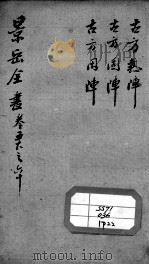 古方熱陣
古方固陣
古方因陣
景岳全書 卷五八之六十
1922
www.mtoou.info